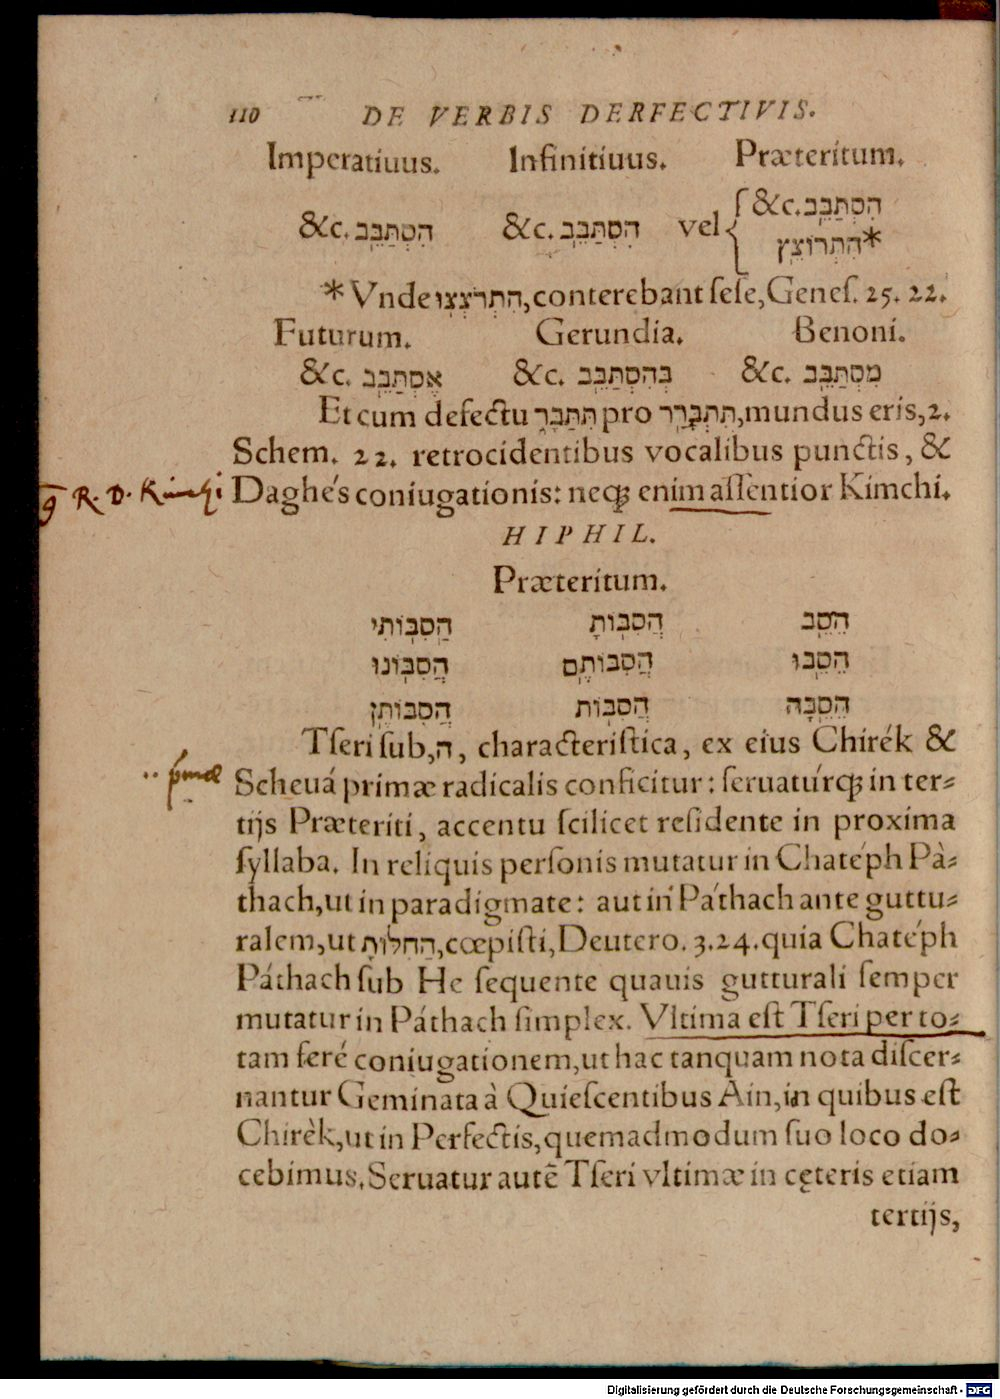 110 DE VERBIS DERFECTIVIS.
Imperatiuus. Infinitiuus. Præteritum.
&c. הִסְתַּבֵּב &c. הִסְתַּבֵּב vel { &c. הִסְתַּבֵּב
*הִתְרוֹצֵץ
* Vnde הִתְרֹצְצוּ, conterebant ſeſe, Geneſ. 25. 22.
Futurum. Gerundia. Benoni.
&c. אֶסְתַּבֵּב &c. בְּהִסְתַּבֵּב &c. מִסְתַּבֵּב
Et cum defectu תִּתְבָּר pro תִּתְבָּרֵר, mundus eris, 2.
Schem. 22. retrocidentibus vocalibus punctis, &
Daghés coniugationis: neq; enim aſſentior Kimchi.
R. D. Kimchi
HIPHIL.
Præteritum.
הֲסִבּוֹתִי הֲסִבּוֹתָ הֵסֵב
הֲסִבּוֹנוּ הֲסִבּוֹתֶם הֵסֵבּוּ
הֲסִבּוֹתֶן הֲסִבּוֹת הֵסֵבָּה
Tſeri ſub, ה, characteriſtica, ex eius Chirék &
Scheuá primæ radicalis conficitur: ſeruatúrq; in ter-
tijs Præteriti, accentu ſcilicet reſidente in proxima
ſyllaba. In reliquis perſonis mutatur in Chatéph Pà-
thach, ut in paradigmate: aut in Páthach ante guttu-
ralem, ut הַחִלּוֹתָ, cœpiſti, Deutero. 3.24. quia Chatéph
Páthach ſub He ſequente quauis gutturali ſemper
mutatur in Páthach ſimplex. Vltima eſt Tſeri per to-
tam feré coniugationem, ut hac tanquam nota diſcer-
nantur Geminata à Quieſcentibus Ain, in quibus eſt
Chirèk, ut in Perfectis, quemadmodum ſuo loco do-
cebimus. Seruatur autē Tſeri vltimæ in cęteris etiam
tertijs,
Digitalisierung gefördert durch die Deutsche Forschungsgemeinschaft - DFG